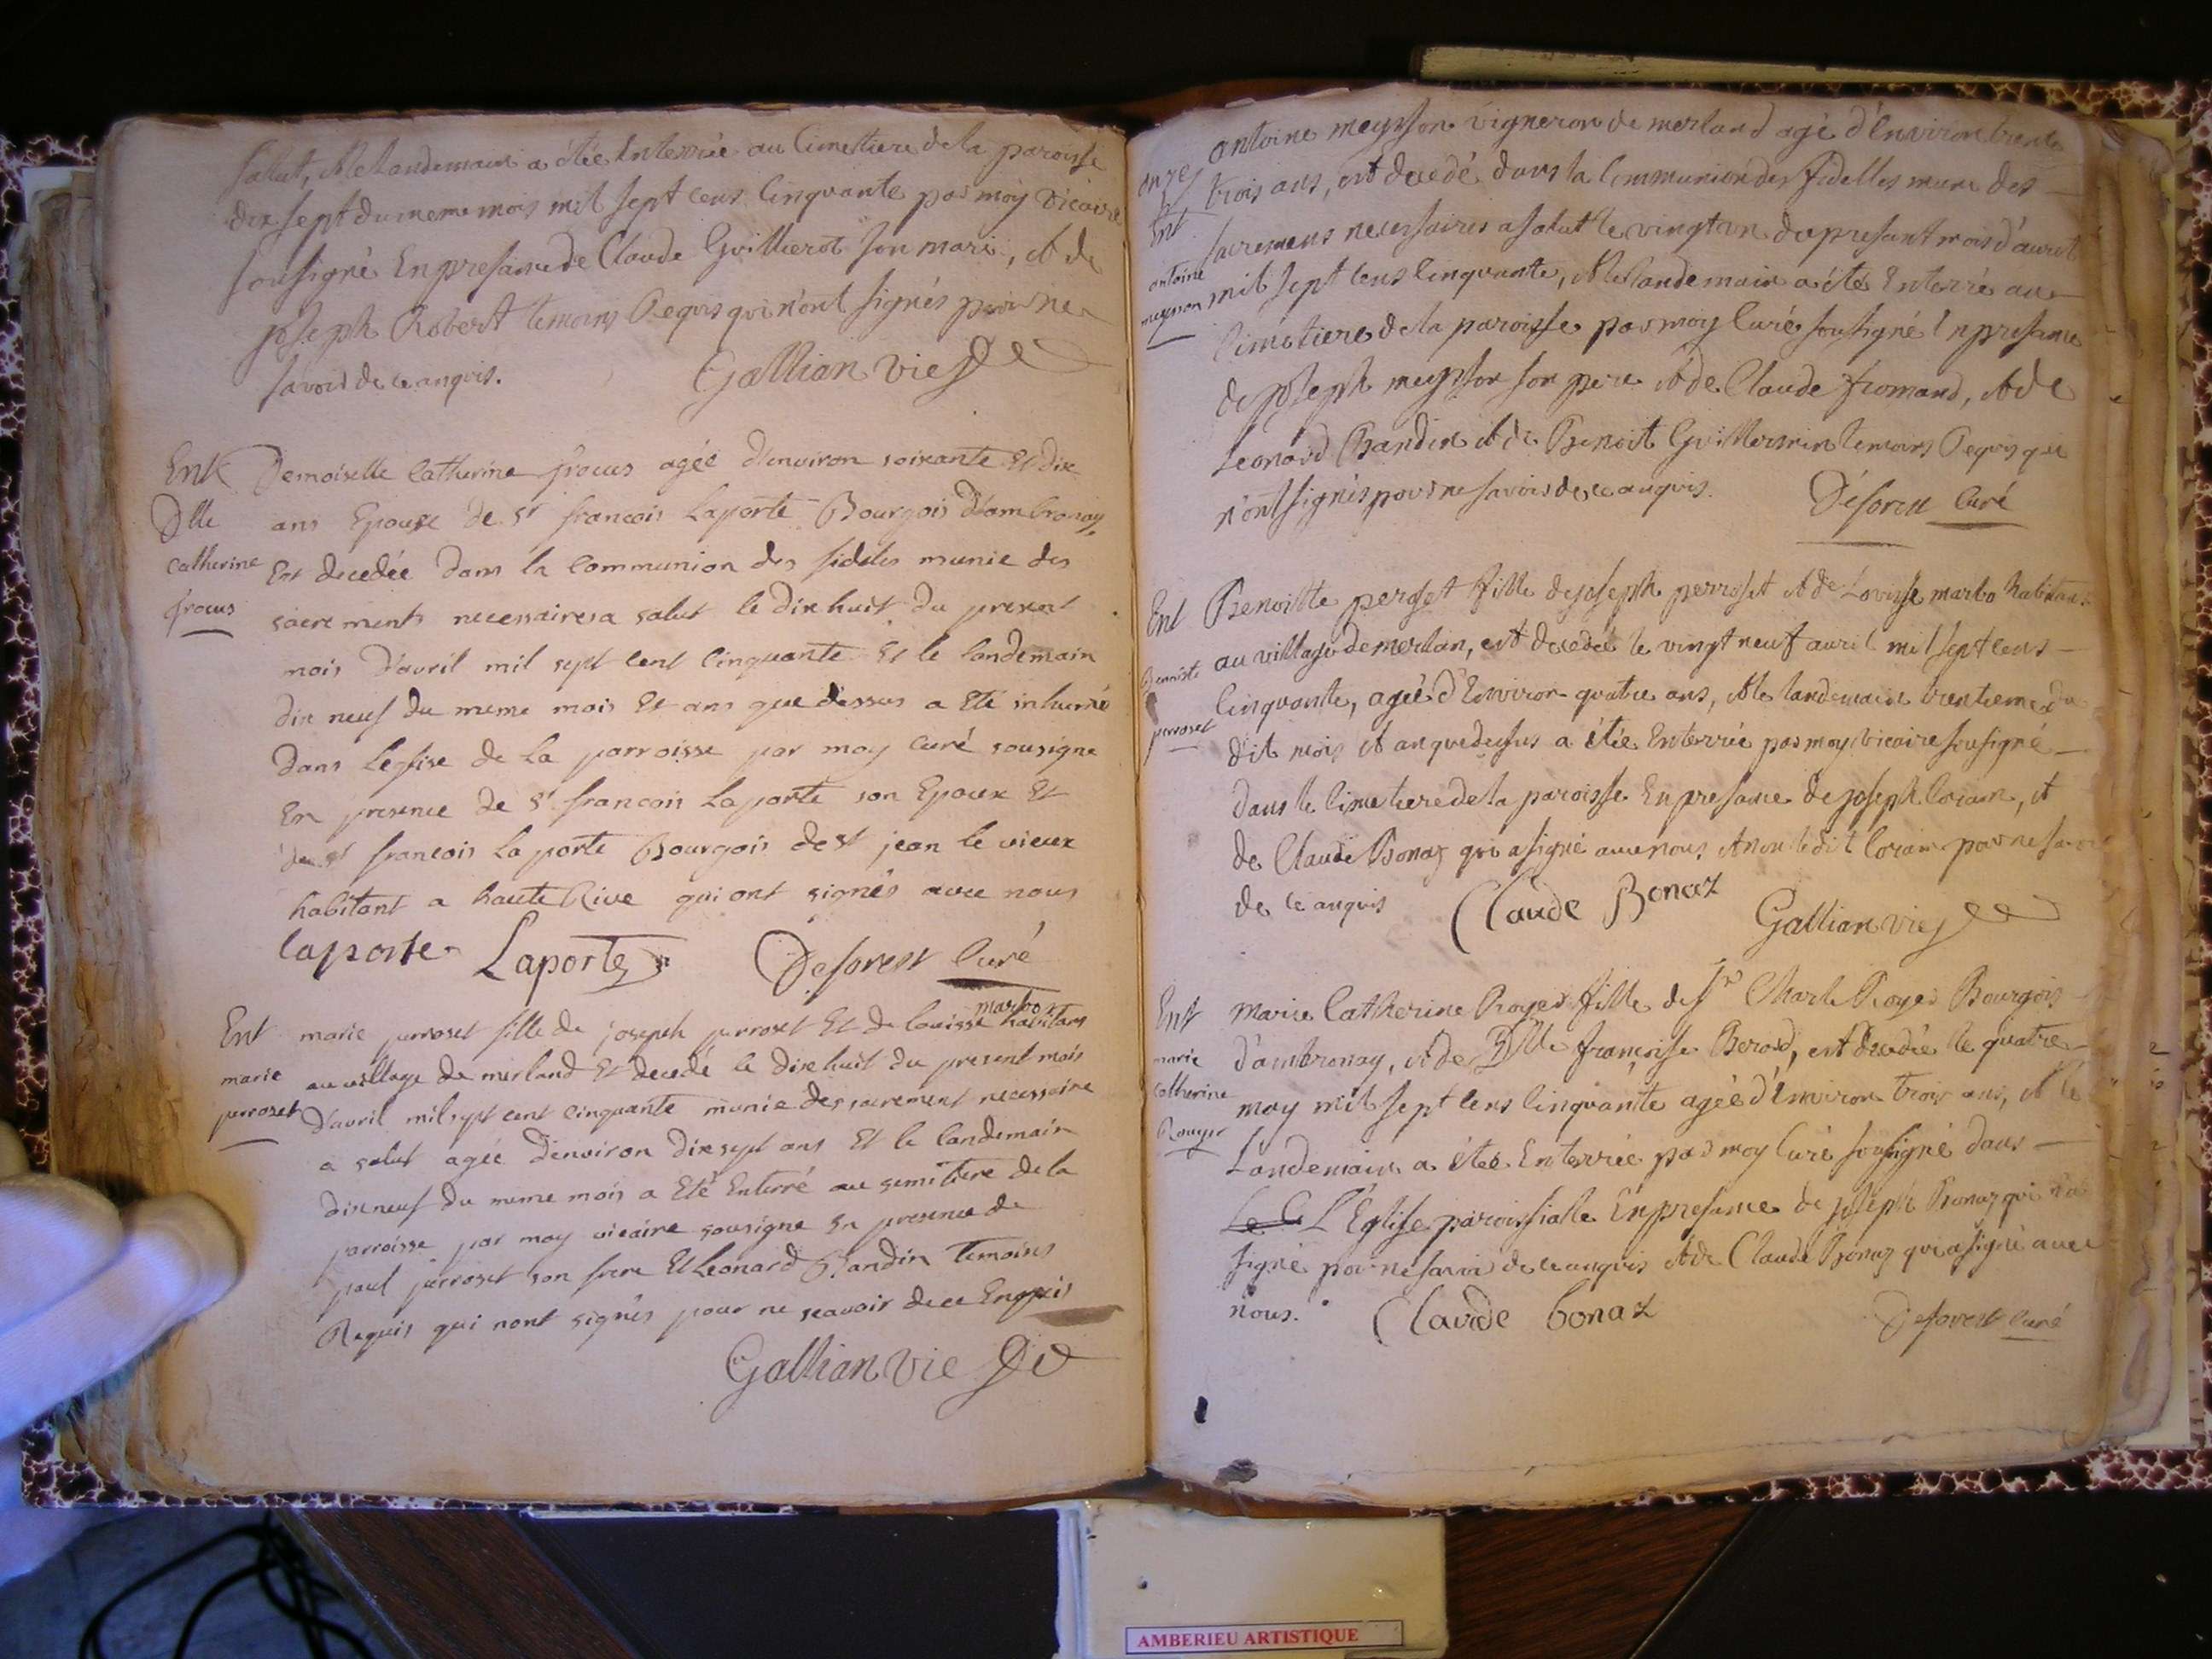 salut, et le landemain a étée Enterrée au Cimettiere de la paroisse
dix sept du meme mois mil sept cens Cinquante par moy vicaire
soussigné En presance de Claude Guillierot son mari, et de
joseph Robert temoins Requis qui n'ont signés pour ne
savoir de ce anquis. Gallian vic
Ent Demoiselle Catherine frocus agée d'environ soixante Et dix
Dlle ans Epouse de sr francois Laporte Bourgois D'ambronay
catherine Est decedée dans la Communion des fideles munie des
frocus sacrements necessaires a salut le dix huit du present
mois D'avril mil sept cent cinquante Et le landemain
dix neuf du meme mois Et ans que dessus a Eté inhumé
dans L'eglise de La parroisse par moy curé sousigne
En presence de sr francois Laporte son Epoux Et
de sr francois La porte Bourgois de st jean le vieux
habitant a haute Rive qui ont signés avec nous
laporte Laporte Deforest Curé
marbo
Ent marie perroset fille de joseph perroset Et de louisse habitans
marie au village de merland Et decedé le dix huit du present mois
perroset D'avril mil sept cent cinquante munie des sacrement necessaire
a salut agée d'environ dix sept ans Et le landemain
dix neuf du meme mois a Eté Enterré au simitiere de la
parroisse par moy vicaire sousigne En presence de
paul perroset son frere Et Leonard Bandin Temoins
Requis qui n'ont signés pour ne scavoir de ce Enquis
Gallian vic
antoine meysson vigneron de merland agé d'Environ trente
onze trois ans, est decedé dans la Communion des fidelles muni des
Ent sacremens necessaires a salut le vingt un du presant mois d'avril
antoine meysson mil sept cens Cinquante, et le landemain a été Enterré au
Cimetiere de la paroisse par moy Curé soussigné En presance
de joseph meysson son pere et de Claude fromand, et de
Leonard Bandin et de Benoit Guillermin temoins Requis qui
n'ont signés pour ne savoir de ce anquis. Deforest Curé
Ent Benoitte peroset fille de joseph perroset et de Louisse marbo habitans
Benoiste au village de merlan, est decedée le vingt neuf avril mil sept cens
perroset Cinquante, agée d'Environ quatre ans, et le landemain trentieme du
dit mois et an que dessus a étée Enterrée par moy vicaire sousigné
dans le Cimetiere de la paroisse En presance de joseph Corain, et
de Claude Bonaz qui a signé avec nous et non ledit Corain pour ne savoir
de ce anquis Claude Bonaz Gallian vic
Ent marie Catherine Royer fille de sr Charle Royer Bourgois
marie d'ambronay, et de Dlle françoise Berod, est decedée le quatre
Catherine may mil sept cens Cinquante agée d'Environ trois ans, et le
Rouyer Landemain a étée Enterrée par moy Curé sousigné dans
Le C L'Eglise paroissialle En presance de joseph Bonaz qui n'a
signé pour ne savoir de ce anquis et de Claude Bonaz qui a signé avec
nous. Claude bonaz Deforest Curé
AMBERIEU ARTISTIQUE